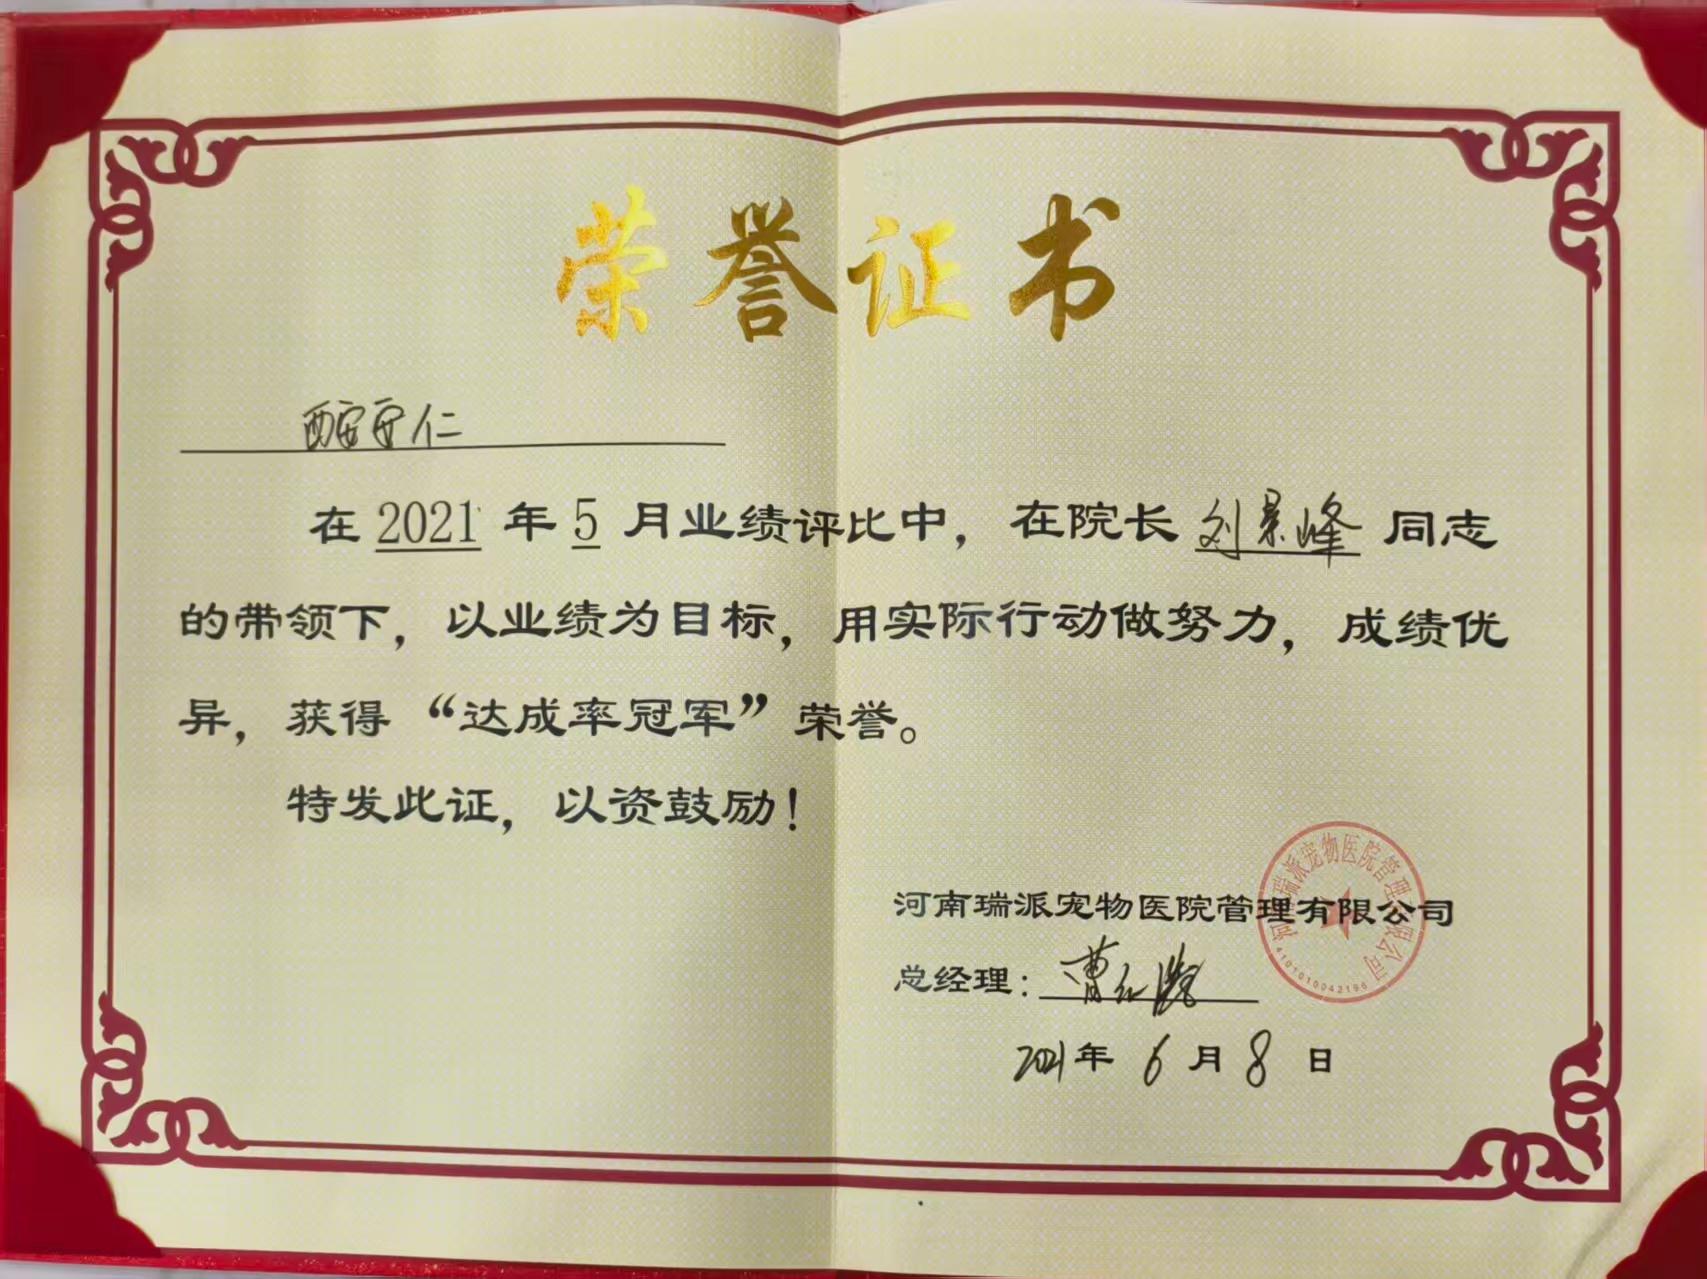 荣誉证书
西安安仁
在 2021 年 5 月业绩评比中，在院长 刘景峰 同志
的带领下，以业绩为目标，用实际行动做努力，成绩优
异，获得“达成率冠军”荣誉。
特发此证，以资鼓励！
河南瑞派宠物医院管理有限公司
总经理：曹
2021年 6 月 8 日
河南瑞派宠物医院管理有限公司
4101010042196